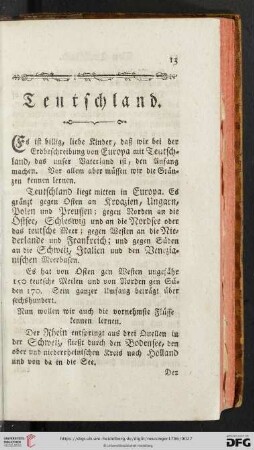 13
Teutschland.
Es ist billig, liebe Kinder, daß wir bei der
Erdbeschreibung von Europa mit Teutsch-
land, das unser Vaterland ist, den Anfang
machen. Vor allem aber müssen wir die Grän-
zen kennen lernen.
Teutschland liegt mitten in Europa. Es
gränzt gegen Osten an Kroazien, Ungarn,
Polen und Preussen; gegen Norden an die
Ostsee, Schleswig und an die Nordsee oder
das teutsche Meer; gegen Westen an die Nie-
derlande und Frankreich; und gegen Süden
an die Schweiz, Italien und den Venezia-
nischen Meerbusen.
Es hat von Osten gen Westen ungefähr
150 teutsche Meilen und von Norden gen Sü-
den 170. Sein ganzer Umfang beträgt über
sechshundert.
Nun wollen wir auch die vornehmste Flüsse
kennen lernen.
Der Rhein entspringt aus drei Quellen in
der Schweiz, fließt durch den Bodensee, den
ober und niederrheinischen Kreis nach Holland
und von da in die See.
Der
UNIVERSITÄTS-
BIBLIOTHEK
HEIDELBERG
Gefördert durch die
DFG